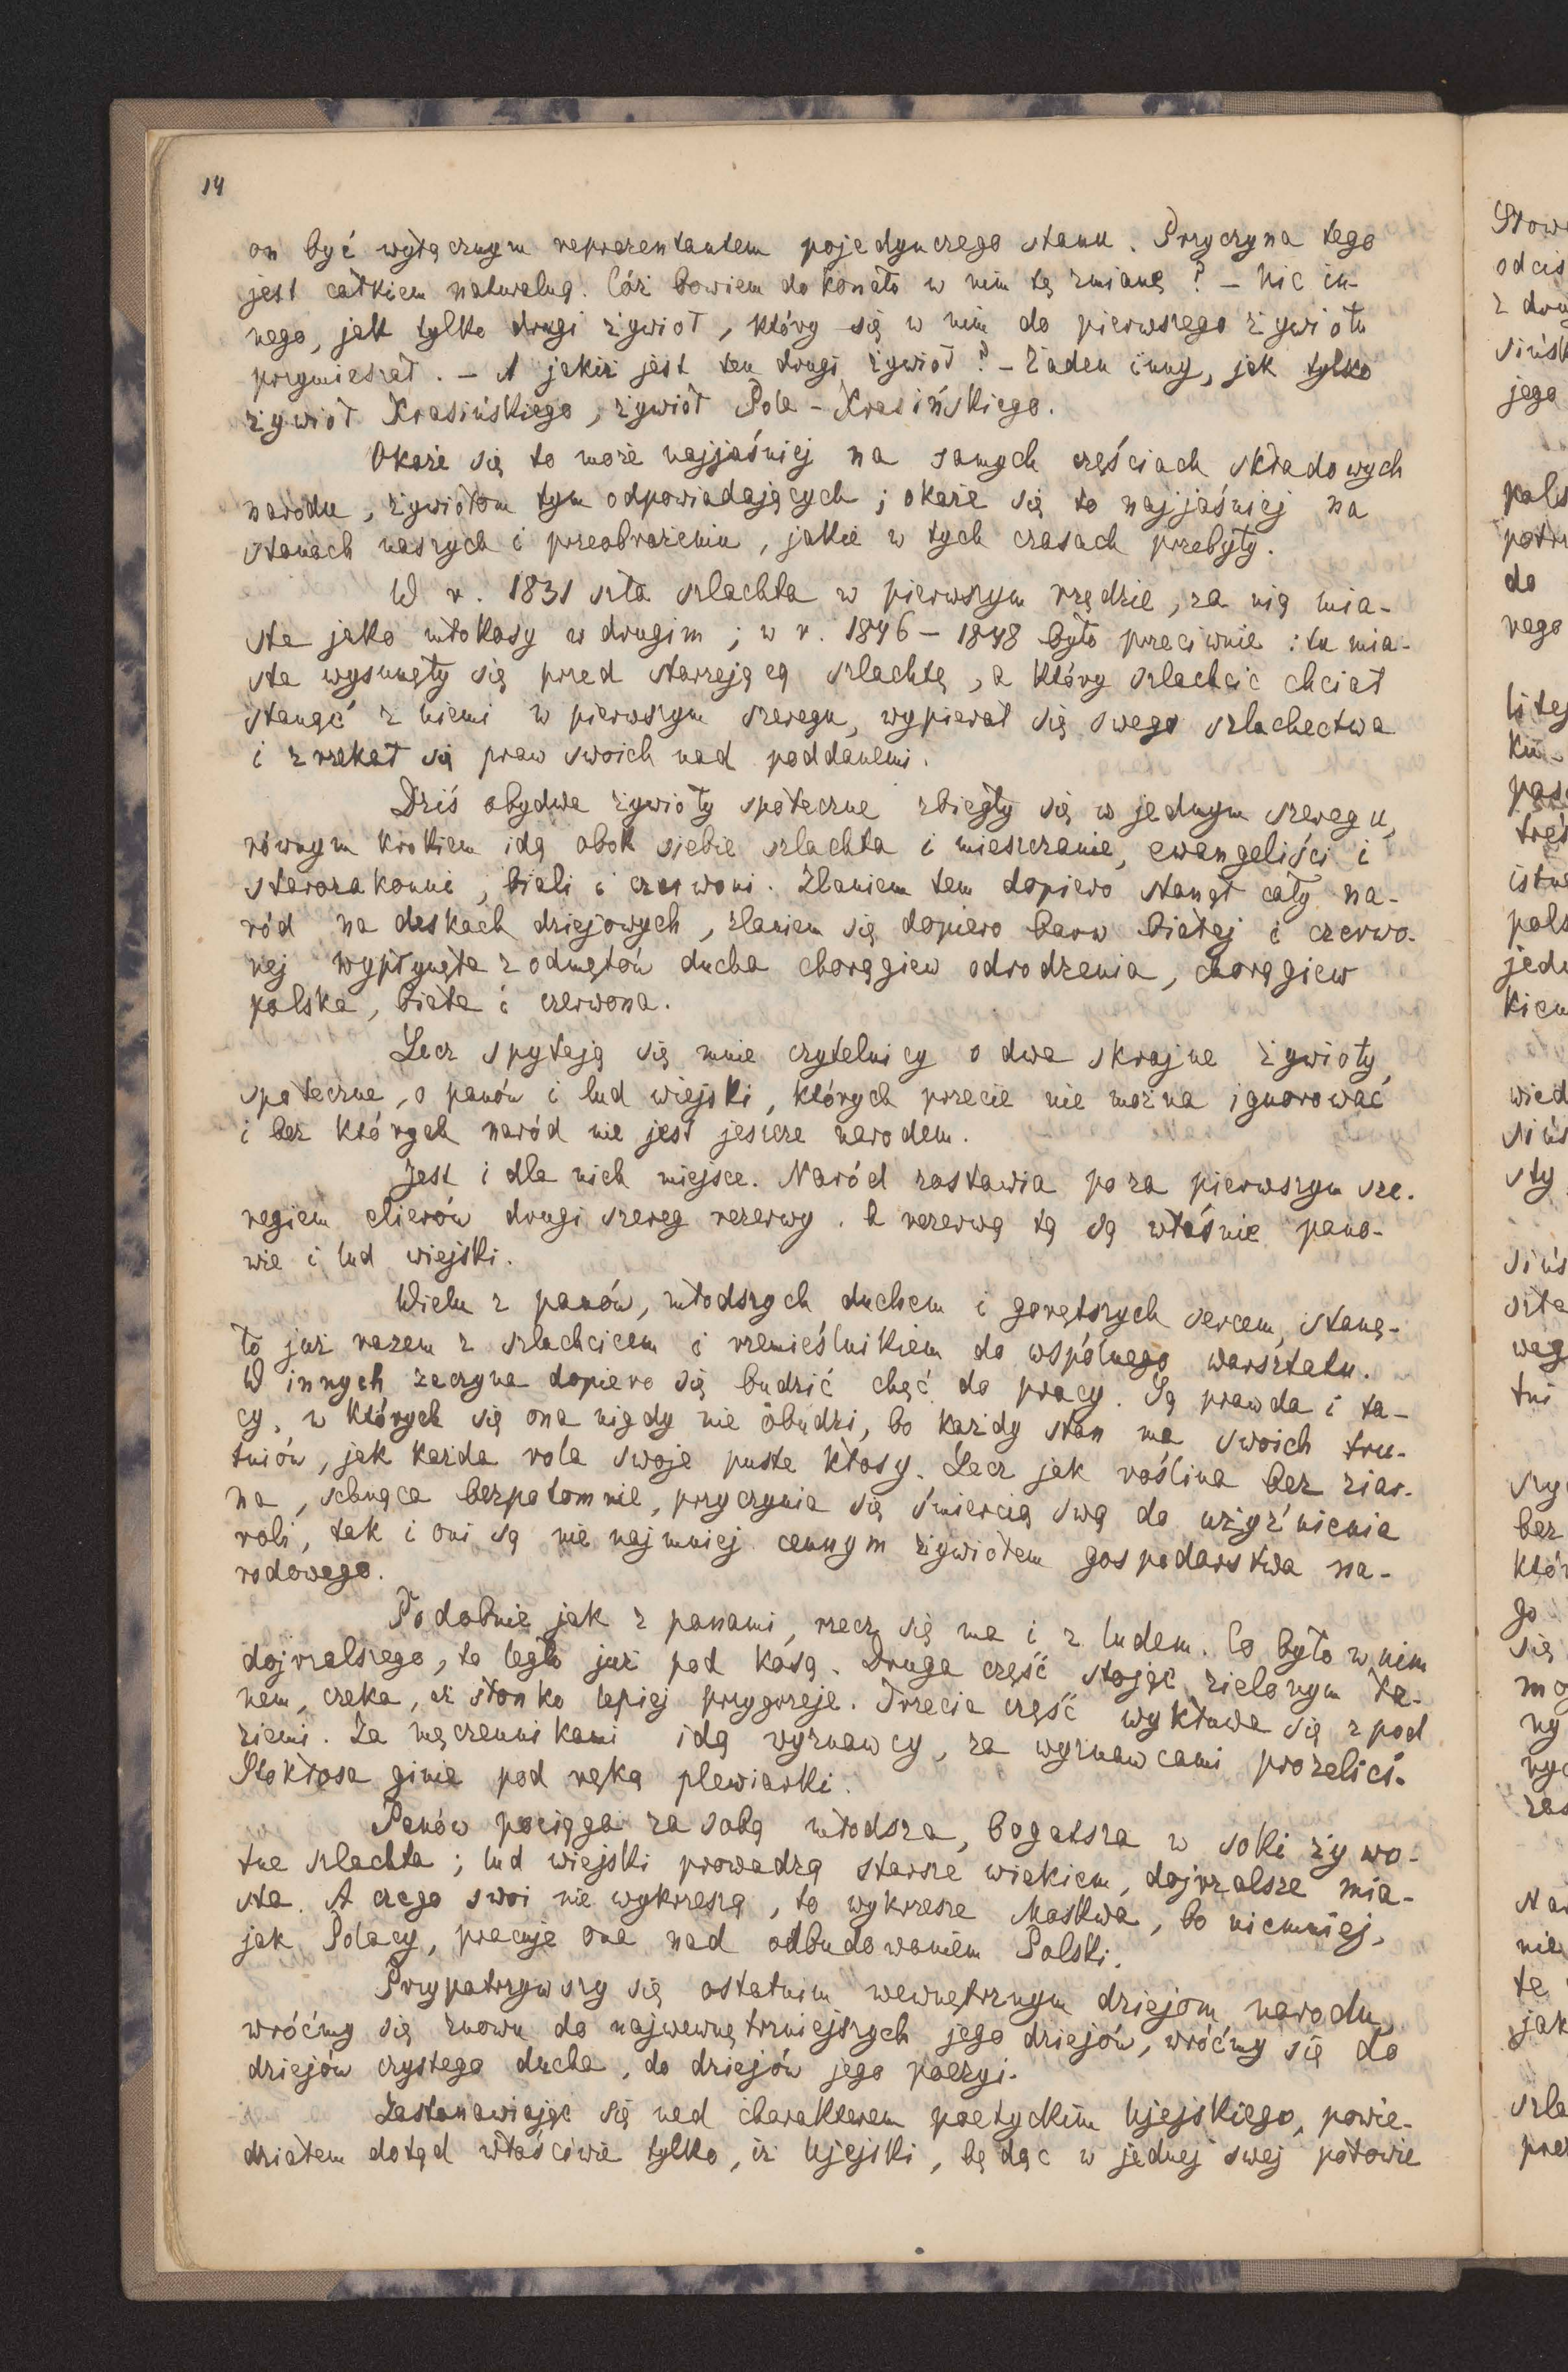 14
on być wyłącznym reprezentantem pojedynczego stanu. Przyczyna tego
jest całkiem naturalną. Cóż bowiem dokonało w nim tę zmianę? – Nic in-
nego, jak tylko drugi żywioł, który się w nim do pierwszego żywiołu
przymieszał. – A jakiż jest ten drugi żywioł? – Żaden inny, jak tylko
żywioł Krasińskiego, żywioł Pola-Krasińskiego.
Okaże się to może najjaśniej na samych częściach składowych
narodu, żywiołom tym odpowiadających; okaże się to najjaśniej na
stanach naszych i przeobrażeniu, jakie w tych czasach przebyły.
W r. 1831 szła szlachta w pierwszym rzędzie, za nią mia-
sta jako włokosy w drugim; w r. 1846–1848 było przeciwnie: tu mia-
sta wysunęły się przed starzejącą szlachtę, a który szlachcic chciał
stanąć z niemi w pierwszym szeregu, wypierał się swego szlachectwa
i zrzekał się praw swoich nad poddanemi.
Dziś obydwa żywioły społeczne zbiegły się w jednym szeregu,
równym krokiem idą obok siebie szlachta i mieszczanie, ewangeliści i
starozakonni, biali i czerwoni. Zlaniem tem dopiero stanął cały na-
ród na deskach dziejowych, zlaniem się dopiero barw białej i czerwo-
nej wypłynęła z odmętów ducha chorągiew odrodzenia, chorągiew
polska, biała i czerwona.
Lecz spytają się mnie czytelnicy o dwa skrajne żywioły
społeczne, o panów i lud wiejski, których przecie nie można ignorować
i bez których naród nie jest jeszcze narodem.
Jest i dla nich miejsce. Naród zostawia poza pierwszym sze-
regiem elierów drugi szereg rezerwy. A rezerwą tą są właśnie pano-
wie i lud wiejski.
Wielu z panów, młodszych duchem i gorętszych sercem, stanę-
ło już razem z szlachcicem i rzemieślnikiem do wspólnego warsztatu.
W innych zaczyna dopiero się budzić chęć do pracy. Są prawda i ta-
cy, w których się ona nigdy nie obudzi, bo każdy stan ma swoich tru-
tniów, jak każda rola swoje puste kłosy. Lecz jak roślina bez ziar-
na, schnąca bezpotomnie, przyczynia się śmiercią swą do użyźnienia
roli, tak i oni są nie najmniej cennym żywiołem gospodarstwa na-
rodowego.
Podobnie jak z panami, rzecz się ma i z ludem. Co było w nim
dojrzalszego, to legło już pod kosą. Druga część stojąc zielonym ła-
nem, czeka, aż słonko lepiej przygrzeje. Trzecia część wykluwa się z pod
ziemi. Za męczennikami idą wyznawcy, za wyznawcami prozelici.
Stokłosa ginie pod ręką plewiarki.
Panów pociąga za sobą młodsza, bogatsza w soki żywo-
tne szlachta; lud wiejski prowadzą starsze wiekiem, dojrzalsze mia-
sta. A czego swoi nie wykrzeszą, to wykrzesze Moskwa, bo niemniej,
jak Polacy, pracuje ona nad odbudowaniem Polski.
Przypatrzywszy się ostatnim wewnętrznym dziejom narodu,
wróćmy się znowu do najwewnętrzniejszych jego dziejów, wróćmy się do
dziejów czystego ducha, do dziejów jego poezyi.
Zastanawiając się nad charakterem poetyckim Ujejskiego, powie-
działem dotąd właściwie tylko, iż Ujejski, będąc w jednej swej połowie